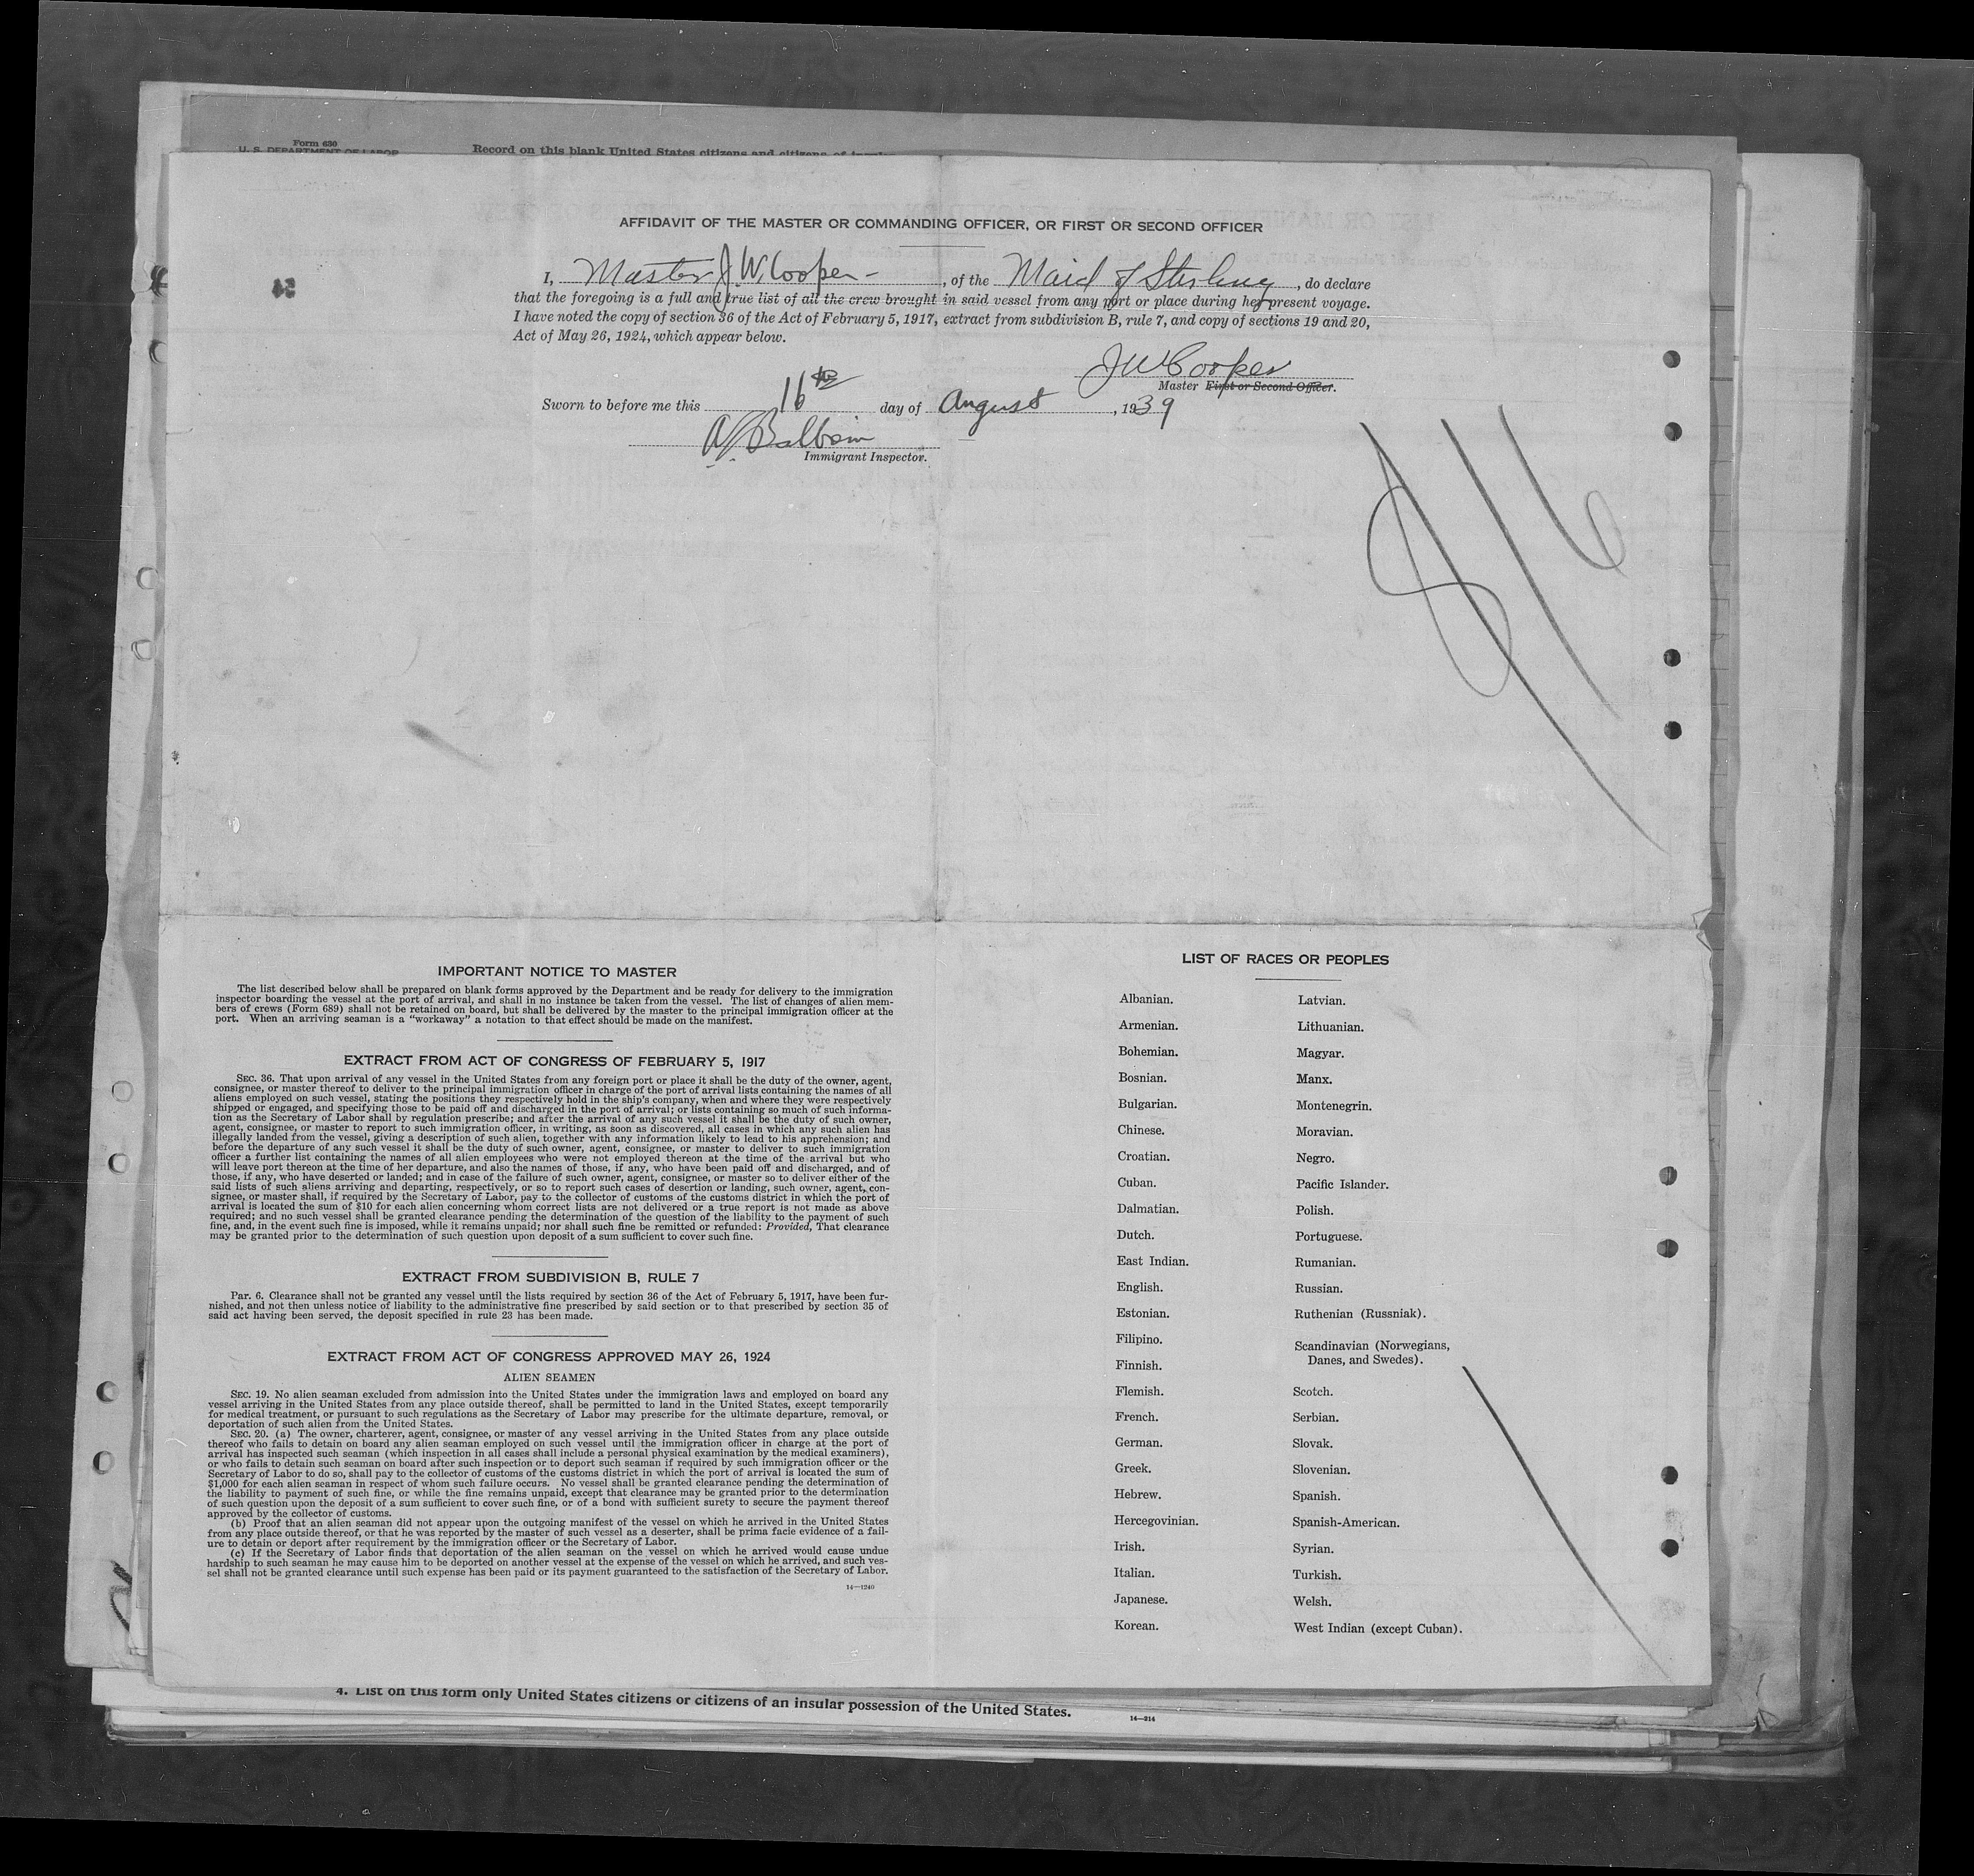 Form 630
U. S. DEPARTMENT OF LABOR
Record on this blank United States citizens and citizens of
AFFIDAVIT OF THE MASTER OR COMMANDING OFFICER, OR FIRST OR SECOND OFFICER
I, Master J. W. Cooper - , of the Maid of Sterling, do declare
that the foregoing is a full and true list of all the crew brought in said vessel from any port or place during her present voyage.
I have noted the copy of section 36 of the Act of February 5, 1917, extract from subdivision B, rule 7, and copy of sections 19 and 20,
Act of May 26, 1924, which appear below.
J W Cooper
Master First or Second Officer.
Sworn to before me this 16th day of August, 1939
Immigrant Inspector.
816
IMPORTANT NOTICE TO MASTER
The list described below shall be prepared on blank forms approved by the Department and be ready for delivery to the immigration
inspector boarding the vessel at the port of arrival, and shall in no instance be taken from the vessel. The list of changes of alien mem-
bers of crews (Form 689) shall not be retained on board, but shall be delivered by the master to the principal immigration officer at the
port. When an arriving seaman is a "workaway" a notation to that effect should be made on the manifest.
EXTRACT FROM ACT OF CONGRESS OF FEBRUARY 5, 1917
SEC. 36. That upon arrival of any vessel in the United States from any foreign port or place it shall be the duty of the owner, agent,
consignee, or master thereof to deliver to the principal immigration officer in charge of the port of arrival lists containing the names of all
aliens employed on such vessel, stating the positions they respectively hold in the ship's company, when and where they were respectively
shipped or engaged, and specifying those to be paid off and discharged in the port of arrival; or lists containing so much of such informa-
tion as the Secretary of Labor shall by regulation prescribe; and after the arrival of any such vessel it shall be the duty of such owner,
agent, consignee, or master to report to such immigration officer, in writing, as soon as discovered, all cases in which any such alien has
illegally landed from the vessel, giving a description of such alien, together with any information likely to lead to his apprehension; and
before the departure of any such vessel it shall be the duty of such owner, agent, consignee, or master to deliver to such immigration
officer a further list containing the names of all alien employees who were not employed thereon at the time of the arrival but who
will leave port thereon at the time of her departure, and also the names of those, if any, who have been paid off and discharged, and of
those, if any, who have deserted or landed; and in case of the failure of such owner, agent, consignee, or master so to deliver either of the
said lists of such aliens arriving and departing, respectively, or so to report such cases of desertion or landing, such owner, agent, con-
signee, or master shall, if required by the Secretary of Labor, pay to the collector of customs of the customs district in which the port of
arrival is located the sum of $10 for each alien concerning whom correct lists are not delivered or a true report is not made as above
required; and no such vessel shall be granted clearance pending the determination of the question of the liability to the payment of such
fine, and, in the event such fine is imposed, while it remains unpaid; nor shall such fine be remitted or refunded: Provided, That clearance
may be granted prior to the determination of such question upon deposit of a sum sufficient to cover such fine.
EXTRACT FROM SUBDIVISION B, RULE 7
Par. 6. Clearance shall not be granted any vessel until the lists required by section 36 of the Act of February 5, 1917, have been fur-
nished, and not then unless notice of liability to the administrative fine prescribed by said section or to that prescribed by section 35 of
said act having been served, the deposit specified in rule 23 has been made.
EXTRACT FROM ACT OF CONGRESS APPROVED MAY 26, 1924
ALIEN SEAMEN
SEC. 19. No alien seaman excluded from admission into the United States under the immigration laws and employed on board any
vessel arriving in the United States from any place outside thereof, shall be permitted to land in the United States, except temporarily
for medical treatment, or pursuant to such regulations as the Secretary of Labor may prescribe for the ultimate departure, removal, or
deportation of such alien from the United States.
SEC. 20. (a) The owner, charterer, agent, consignee, or master of any vessel arriving in the United States from any place outside
thereof who fails to detain on board any alien seaman employed on such vessel until the immigration officer in charge at the port of
arrival has inspected such seaman (which inspection in all cases shall include a personal physical examination by the medical examiners),
or who fails to detain such seaman on board after such inspection or to deport such seaman if required by such immigration officer or the
Secretary of Labor to do so, shall pay to the collector of customs of the customs district in which the port of arrival is located the sum of
$1,000 for each alien seaman in respect of whom such failure occurs. No vessel shall be granted clearance pending the determination of
the liability to payment of such fine, or while the fine remains unpaid, except that clearance may be granted prior to the determination
of such question upon the deposit of a sum sufficient to cover such fine, or of a bond with sufficient surety to secure the payment thereof
approved by the collector of customs.
(b) Proof that an alien seaman did not appear upon the outgoing manifest of the vessel on which he arrived in the United States
from any place outside thereof, or that he was reported by the master of such vessel as a deserter, shall be prima facie evidence of a fail-
ure to detain or deport after requirement by the immigration officer or the Secretary of Labor.
(c) If the Secretary of Labor finds that deportation of the alien seaman on the vessel on which he arrived would cause undue
hardship to such seaman he may cause him to be deported on another vessel at the expense of the vessel on which he arrived, and such ves-
sel shall not be granted clearance until such expense has been paid or its payment guaranteed to the satisfaction of the Secretary of Labor.
14—1240
LIST OF RACES OR PEOPLES
Albanian. Latvian.
Armenian. Lithuanian.
Bohemian. Magyar.
Bosnian. Manx.
Bulgarian. Montenegrin.
Chinese. Moravian.
Croatian. Negro.
Cuban. Pacific Islander.
Dalmatian. Polish.
Dutch. Portuguese.
East Indian. Rumanian.
English. Russian.
Estonian. Ruthenian (Russniak).
Filipino. Scandinavian (Norwegians,
Finnish. Danes, and Swedes).
Flemish. Scotch.
French. Serbian.
German. Slovak.
Greek. Slovenian.
Hebrew. Spanish.
Hercegovinian. Spanish-American.
Irish. Syrian.
Italian. Turkish.
Japanese. Welsh.
Korean. West Indian (except Cuban).
4. List on this form only United States citizens or citizens of an insular possession of the United States.
14—214